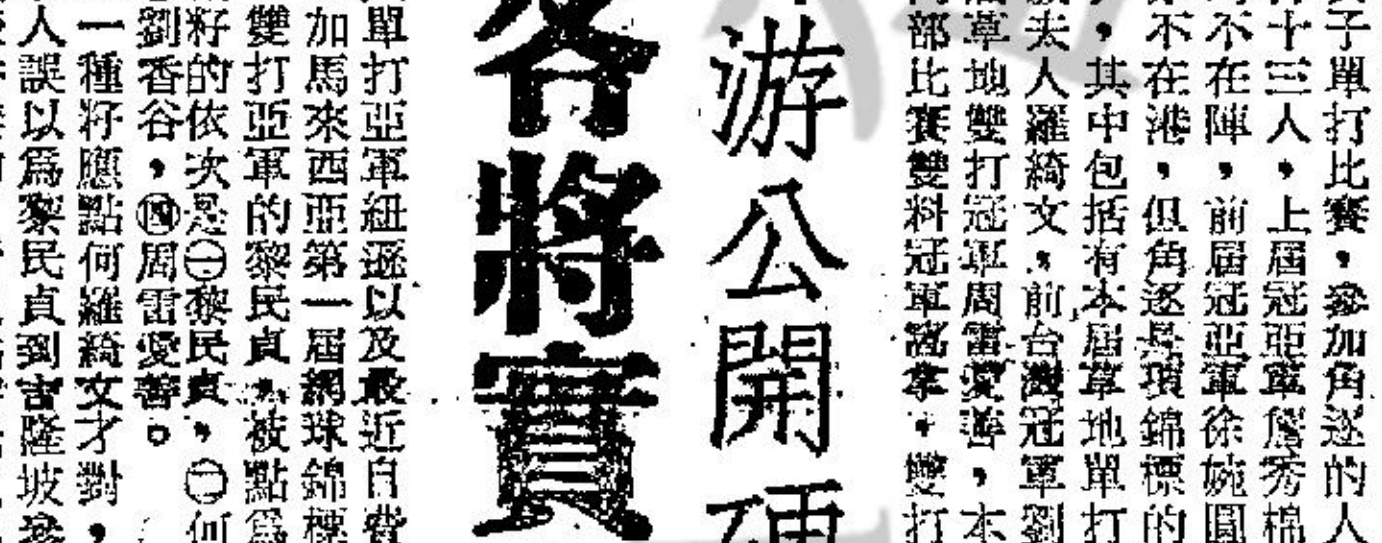 子單打比賽，參加角逐的人
十三人，上屆冠亞軍詹秀棉
不在陣，前屆冠亞軍徐婉圓
不在港，但角逐是項錦標的
，其中包括有本屆草地單打
夫人羅綺文，前台灣冠軍劉
草地雙打冠軍周雷愛善，本
部比賽雙料冠軍窩拿，雙打
游公開硬
各將實
單打亞軍紐遜以及最近自費
加馬來西亞第一屆網球錦標
雙打亞軍的黎民貞，被點爲
籽的依次是㊀黎民貞，㊁何
劉香谷，㊃周雷愛善。
一種籽應點何羅綺文才對，
人誤以爲黎民貞到吉隆坡參